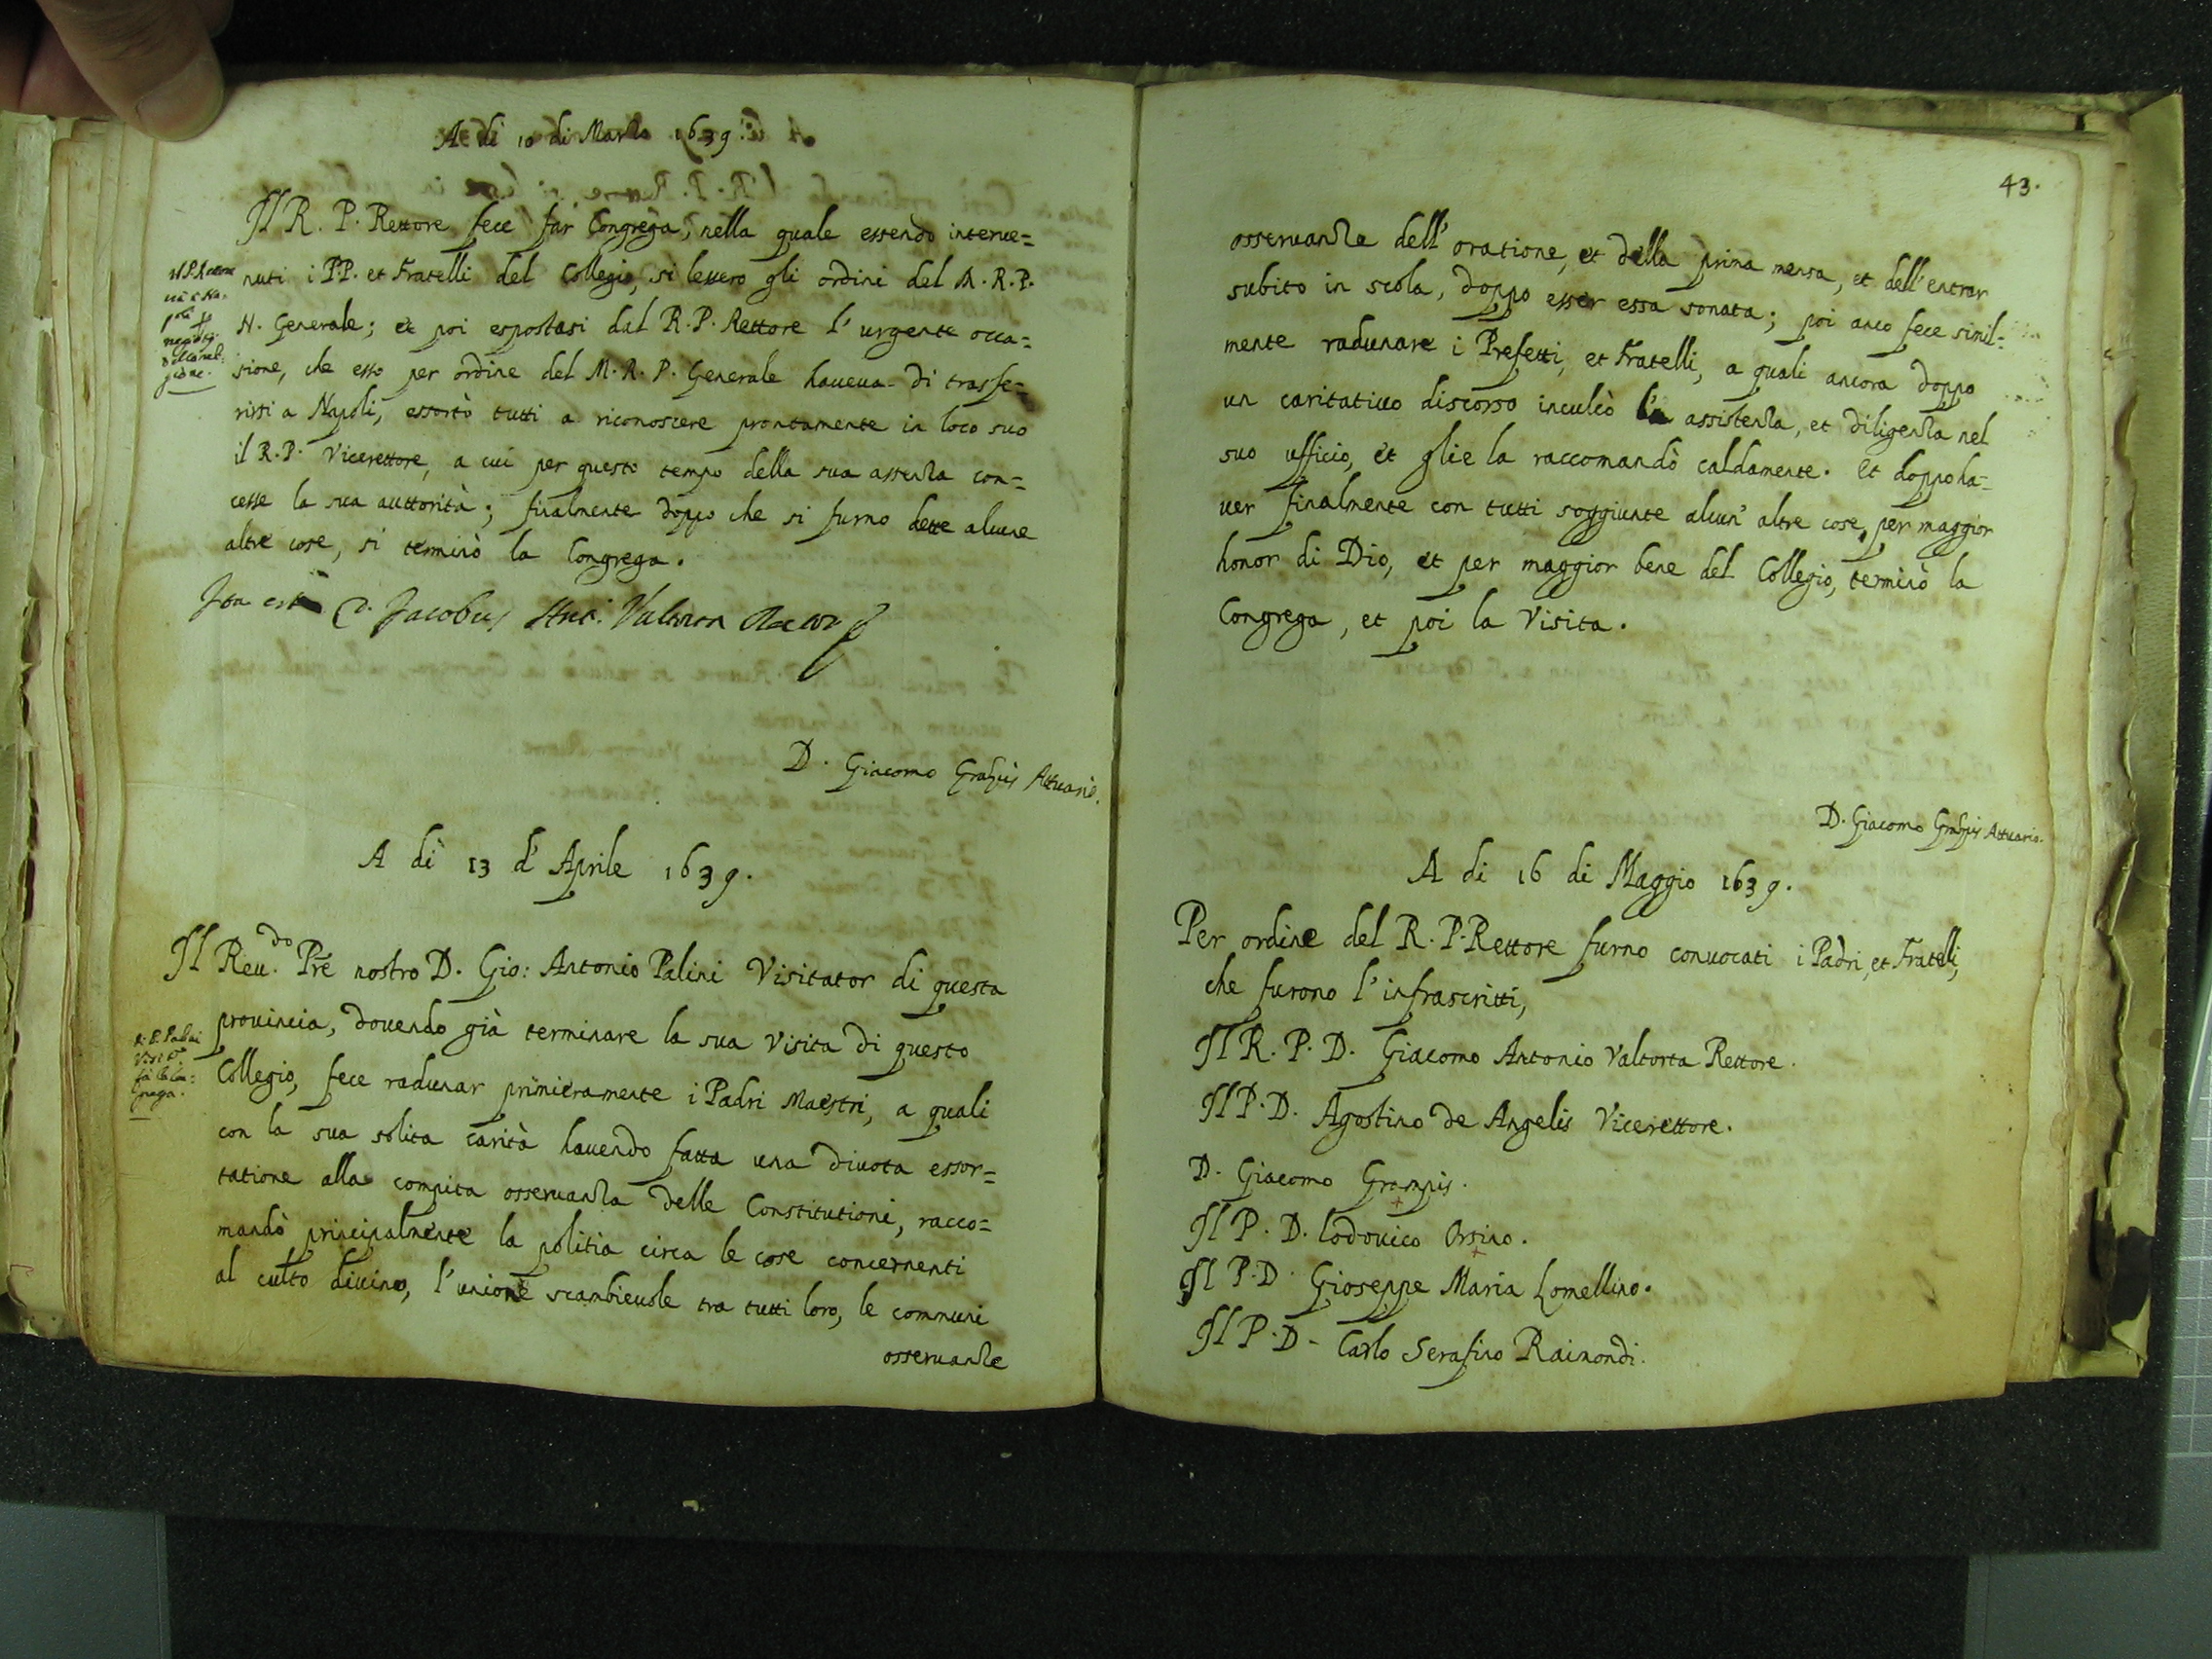 A dì 10 di Marzo 1639.
Il R. P. Rettore fece far Congrega, nella quale essendo interue=
nuti i PP. et Fratelli del Collegio, si lessero gli ordini del M. R. P.
N. Generale; et poi espostasi dal R. P. Rettore l'urgente occa=
sione, che esso per ordine del M. R. P. Generale haueua di trasfe=
rirsi a Napoli, essortò tutti a riconoscere prontamente in loco suo
il R. P. Vicerettore, a cui per questo tempo della sua assenza con=
cesse la sua auttorità; finalmente doppo che si furno dette alcune
altre cose, si terminò la Congrega.
Ita est D. Jacobus Ant. Valtorta Rector
D. Giacomo Grampis Attuario.
A dì 13 d'Aprile 1639.
Il Reu.do Pre nostro D. Gio: Antonio Palini Visitator di questa
prouincia, douendo già terminare la sua Visita di questo
R. P. Palini
Collegio, fece radunar primieramente i Padri Maestri, a quali
con la sua solita carità hauendo fatta una diuota essor=
tatione alla compita osseruanza delle Constitutioni, racco=
mandò principalmente la politia circa le cose concernenti
al culto diuino, l'unione scambieuole tra tutti loro, le communi
osseruanze
43.
osseruanza dell'oratione, et della prima mensa, et dell'entrar
subito in scola, doppo esser essa sonata; poi anco fece simil=
mente radunare i Prefetti, et Fratelli, a quali ancora doppo
un caritatiuo discorso inculcò l'assistenza, et diligenza nel
suo ufficio, et glie la raccomandò caldamente. Et doppo ha=
uer finalmente con tutti soggiunte alcun'altre cose, per maggior
honor di Dio, et per maggior bene del Collegio, terminò la
Congrega, et poi la Visita.
D. Giacomo Grampis Attuario.
A di 16 di Maggio 1639.
Per ordine del R. P. Rettore furno conuocati i Padri, et Fratelli,
che furono l'infrascritti,
Il R. P. D. Giacomo Antonio Valtorta Rettore.
Il P. D. Agostino de Angelis Vicerettore.
D. Giacomo Grampis.
Il P. D. Lodouico Orsino.
Il P. D. Gioseppe Maria Lomellino.
Il P. D. Carlo Serafino Raimondi.